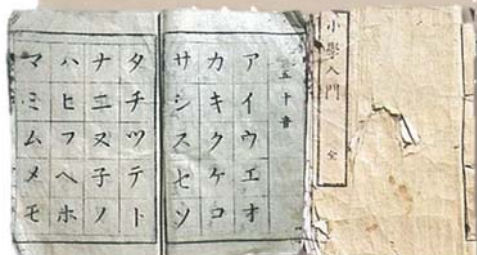 小學入門 全
五十音
アイウエオ
カキクケコ
サシスセソ
タチツテト
ナニヌ子ノ
ハヒフヘホ
マミムメモ